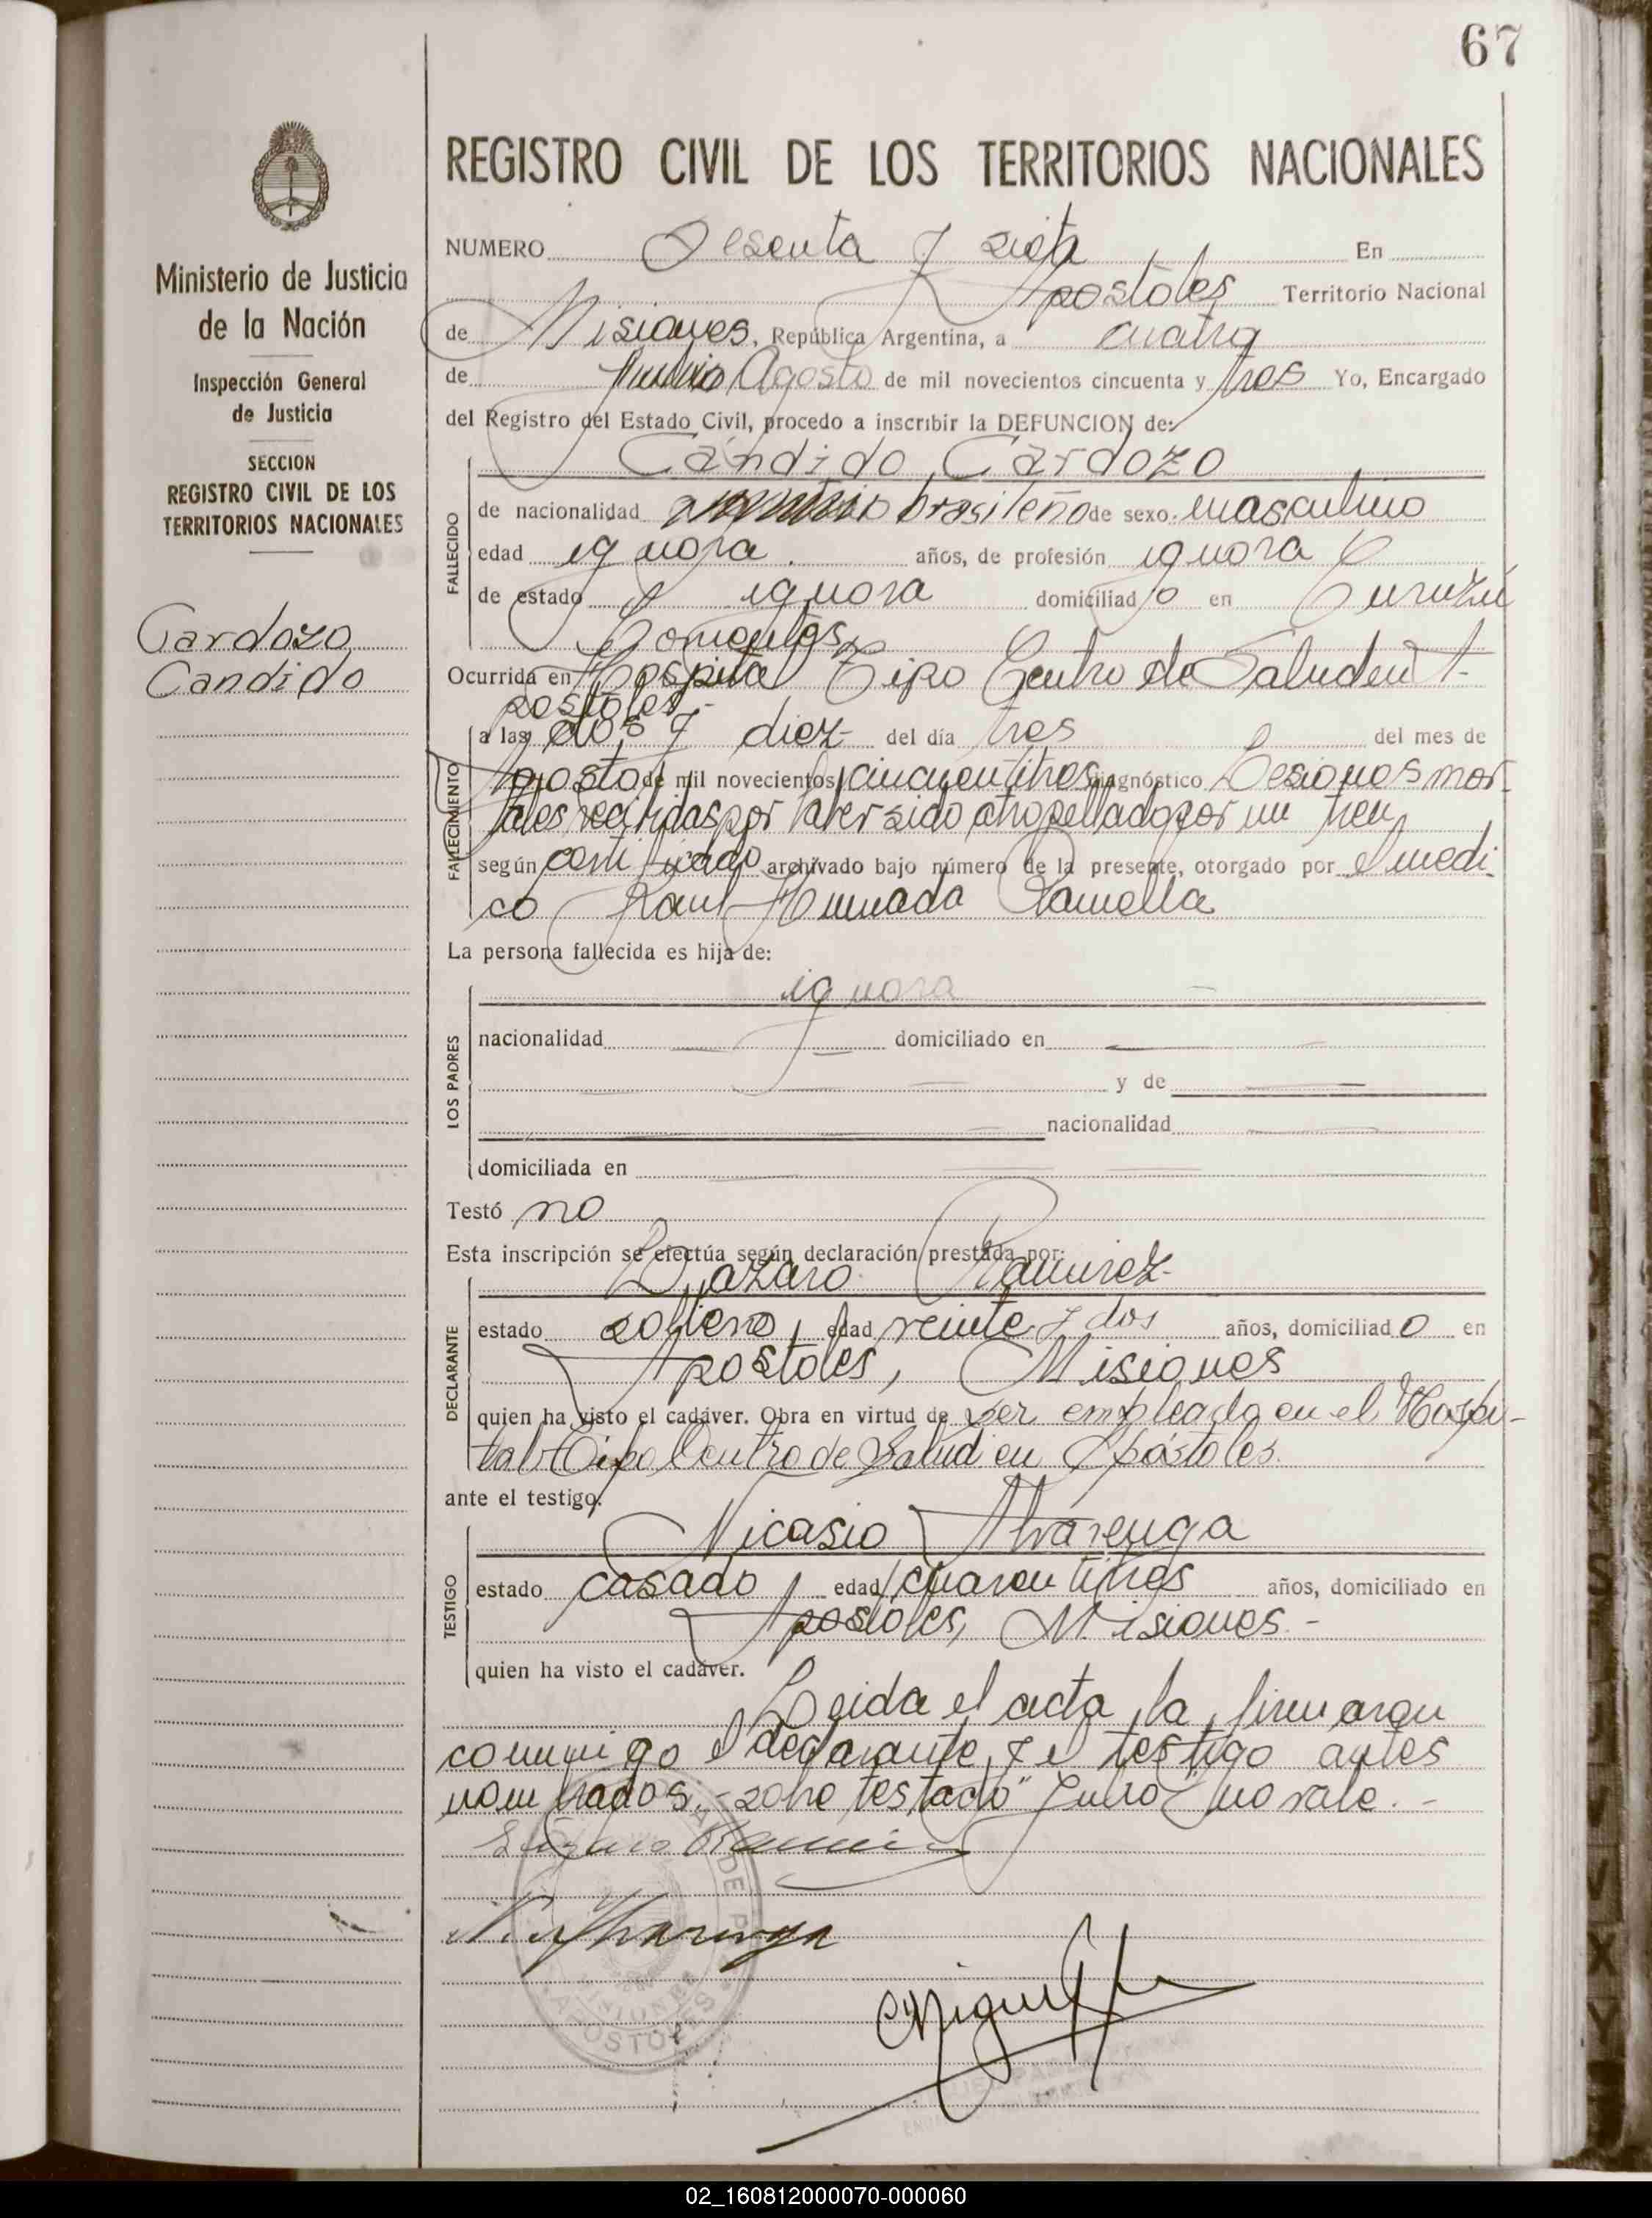 67
REGISTRO CIVIL DE LOS TERRITORIOS NACIONALES
Ministerio de Justicia
de la Nación
Inspección General
de Justicia
SECCION
REGISTRO CIVIL DE LOS
TERRITORIOS NACIONALES
Cardozo
Candido
NUMERO Sesenta y siete En
Apostoles Territorio Nacional
de Misiones, República Argentina, a cuatro
de Agosto de mil novecientos cincuenta y tres Yo, Encargado
del Registro del Estado Civil, procedo a inscribir la DEFUNCION de:
Cándido Cardozo
FALLECIDO
de nacionalidad brasileño de sexo masculino
edad ignora años, de profesión ignora
de estado ignora domiciliado en
Ocurrida en Hospital Tipo Centro de Salud en A-
postoles.-
FALLECIMIENTO
a las dos y diez del día tres del mes de
Agosto de mil novecientos cincuentitres diagnóstico Lesiones mor-
tales recibidas por haber sido atropellado por un tren
según certificado archivado bajo número de la presente, otorgado por el medi-
co Raul
La persona fallecida es hija de:
LOS PADRES
ignora
nacionalidad domiciliado en
y de
nacionalidad
domiciliada en
Testó no
Esta inscripción se efectúa según declaración prestada por:
Lazaro Ramirez
DECLARANTE
estado soltero, edad veinte y dos años, domiciliado en
Apostoles, Misiones
quien ha visto el cadáver. Obra en virtud de ser empleado en el Hospi-
tal Tipo Centro de Salud en Apóstoles.
ante el testigo:
Nicasio Alvarenga
TESTIGO
estado casado, edad cuarentitres años, domiciliado en
Apostoles, Misiones -
quien ha visto el cadáver.
Leida el acta, la firmaron
conmigo el declarante y el testigo antes
nombrados.- sobre testado "Julio" no vale.-
Lazaro Ramirez
N. Alvarenga
MISIONES
APOSTOLES
02_160812000070-000060